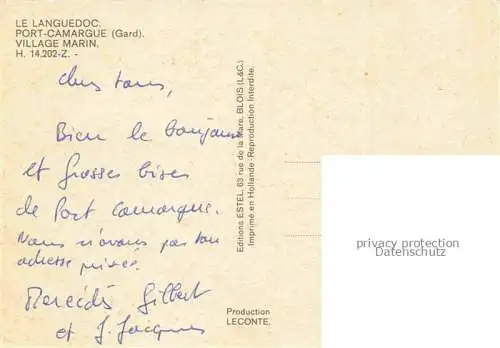 LE LANGUEDOC.
PORT-CAMARGUE (Gard).
VILLAGE MARIN.
H. 14.202-Z. -
Chers tous,
Bien le bonjour
et grosses bises
de Port Camargue.
Nous n'avons pas ton
adresse
Mercédès Gilbert
et J. Jacques
Editions ESTEL, 63 rue de la Mare, BLOIS (L&C.)
Imprimé en Hollande. Reproduction Interdite.
Production
LECONTE.
privacy protection
Datenschutz